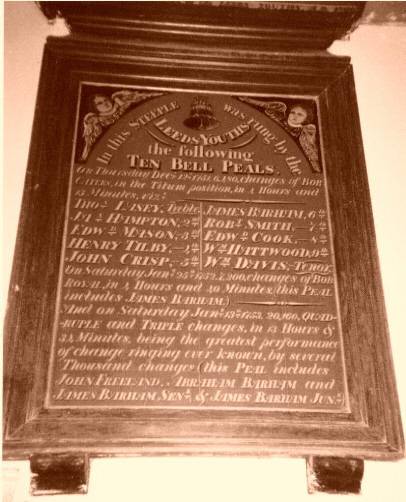 In this STEEPLE was rung by the
LEEDS YOUTHS
the following
TEN BELL PEALS.
On Thursday Decr. 12th 1751. 6,480, changes of BOB
CATERS, in the Tittum position, in 4 Hours and
Minutes, viz.
THOs. LAISEY, Treble. JAMES BARHAM, 6th
JAs. HAMPTON, 2nd ROBt. SMITH, 7th
EDWd. MASON, 3rd EDWd. COOK, 8th
HENRY TILBY, 4th Wm. HATTWOOD, 9th
JOHN CRISP, 5th Wm. DAVIS, Tenor.
On Saturday Jany. 25th 1752. 7,200, changes of BOB
ROYAL, in 4 Hours and 40 Minutes, (this PEAL
includes JAMES BARHAM.)
And on Saturday Jany. 13th 1753. 20,160, QUAD-
RUPLE and TRIPLE changes, in 13 Hours &
33 Minutes, being the greatest performance
of change ringing ever known, by several
Thousand changes, (this PEAL includes
JOHN FREELAND, ABRAHAM BARHAM and
JAMES BARHAM SENr. & JAMES BARHAM JUNr.